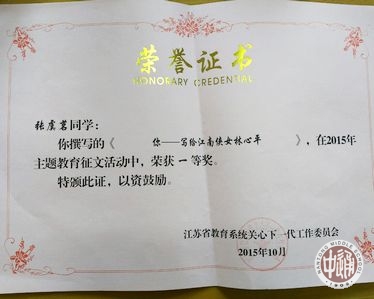 荣誉证书
HONORARY CREDENTIAL
张虞茗同学：
你撰写的《 你——写给江南侠女林心平 》，在2015年
主题教育征文活动中，荣获一等奖。
特颁此证，以资鼓励。
江苏省教育系统关心下一代工作委员会
2015年10月
1909